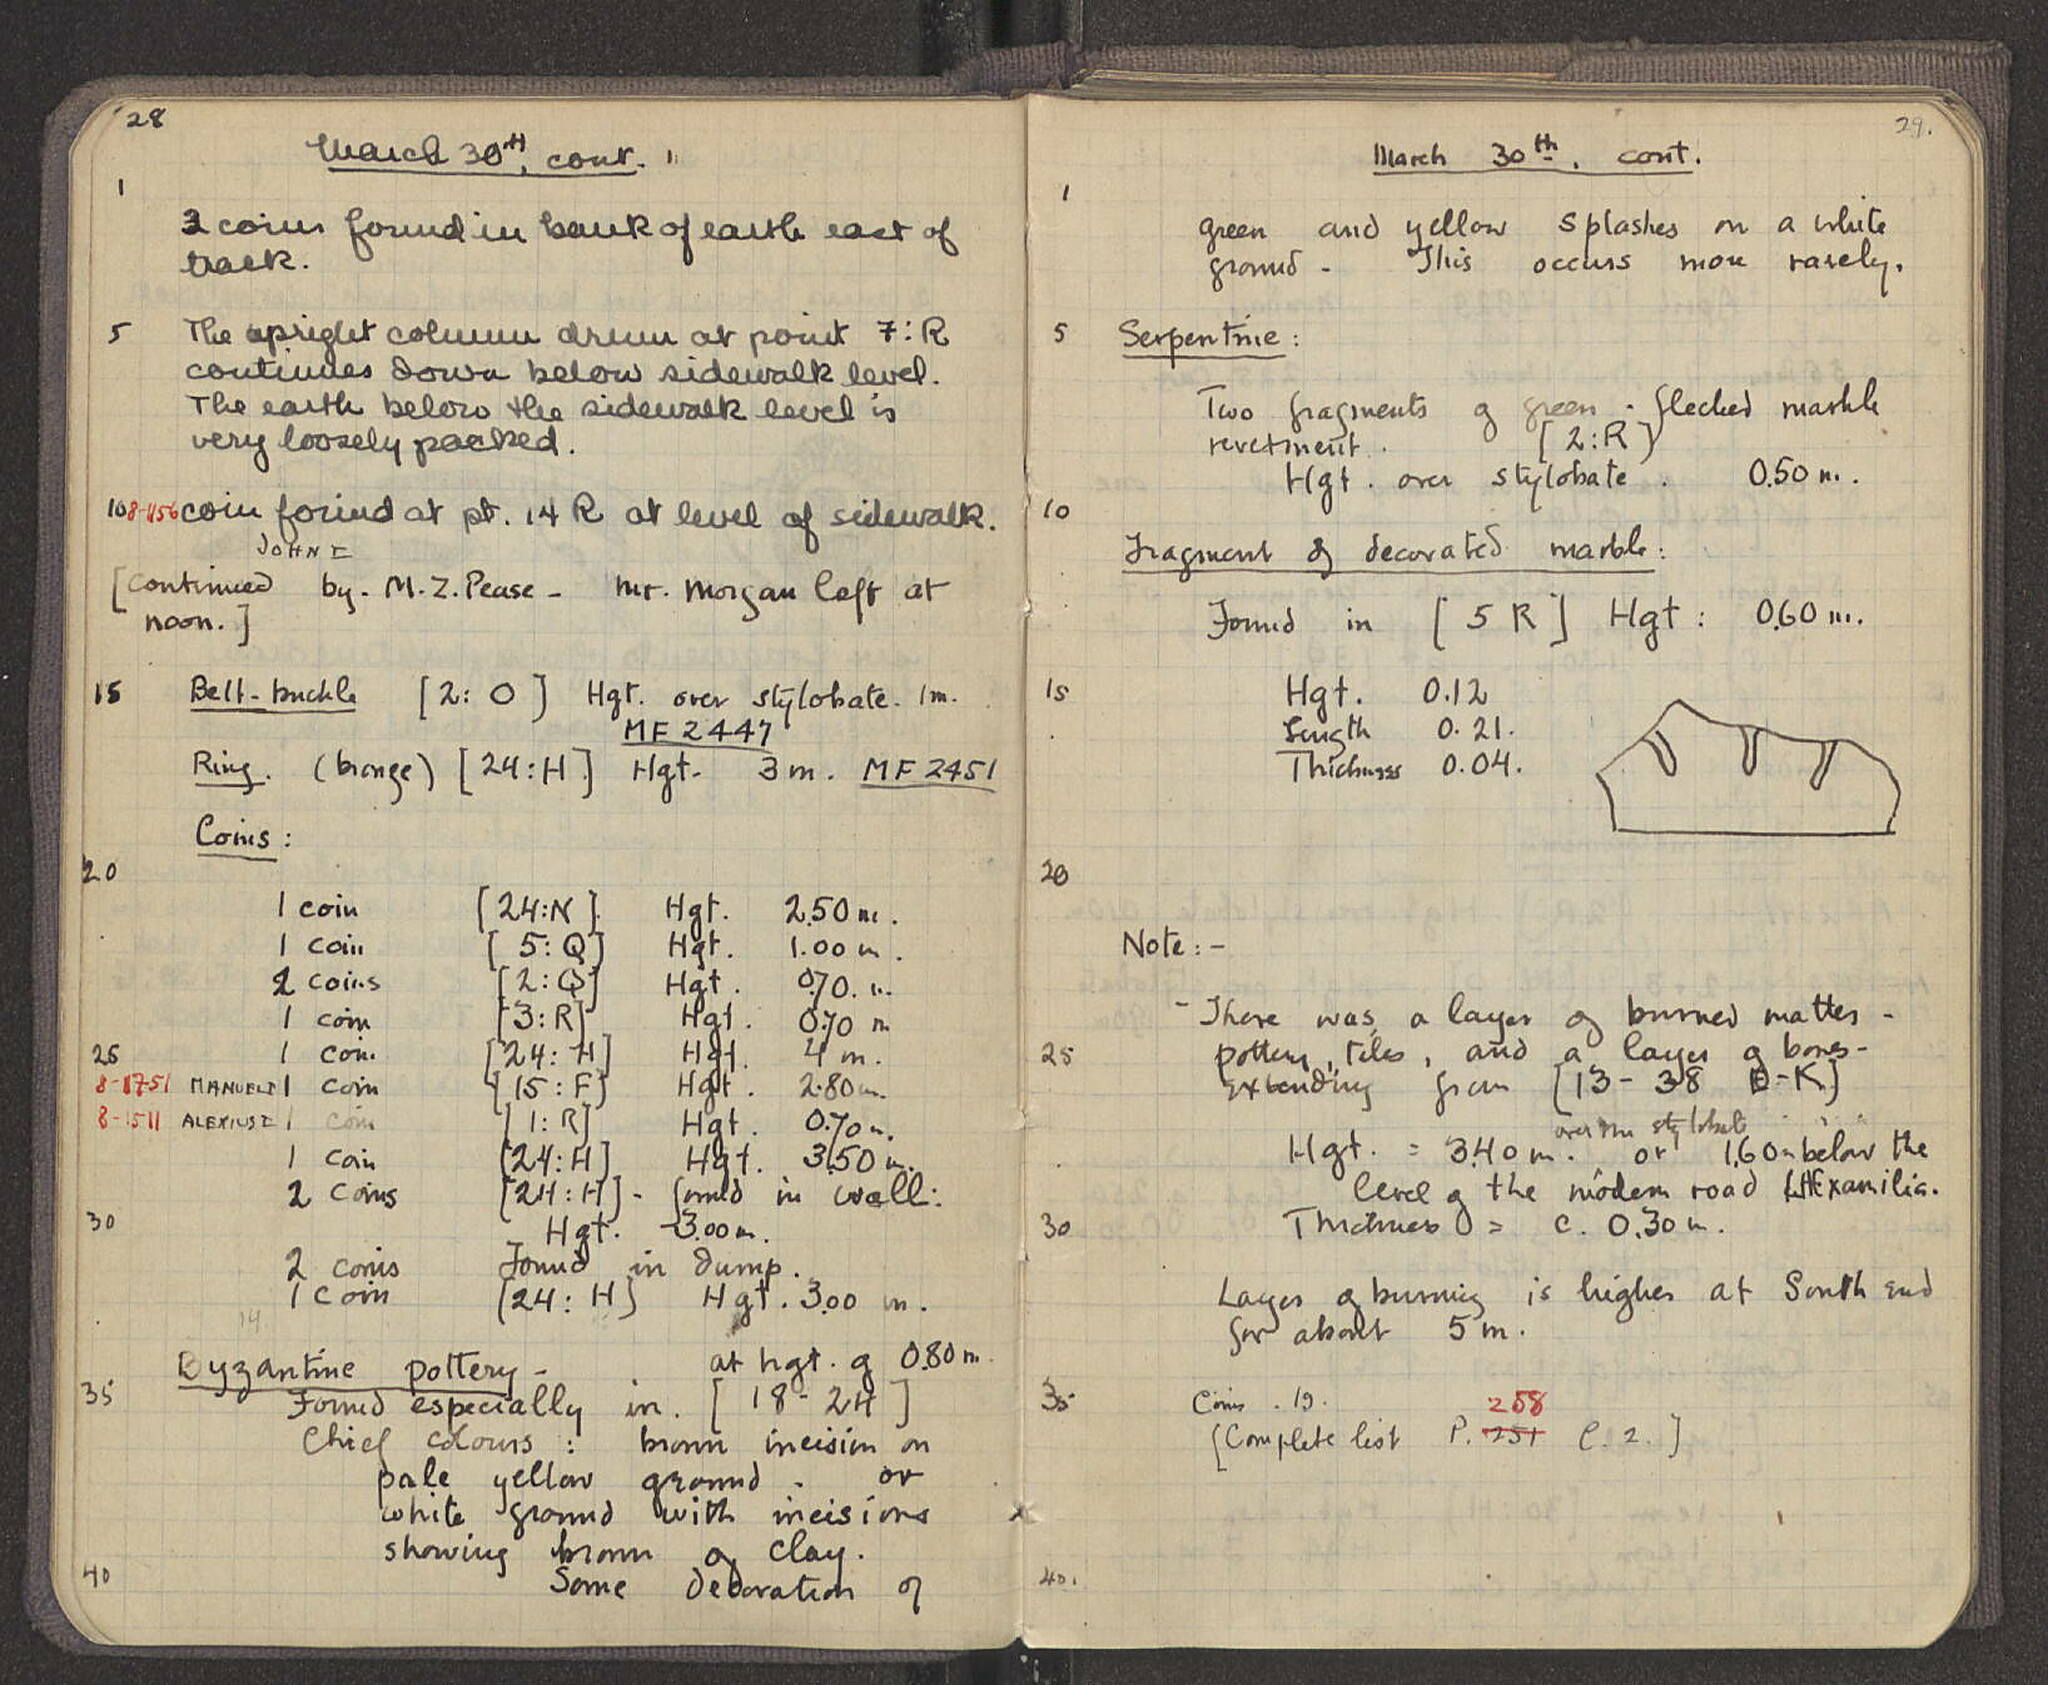 28
March 30th, cont.
1
3 coins found in bank of earth east of
track.
5 The upright column drum at point 7:R
continues down below sidewalk level.
The earth below the sidewalk level is
very loosely packed.
10 8-1156 coin found at pt. 14 R at level of sidewalk.
JOHN I
[continued by - M. Z. Pease - Mr. Morgan left at
noon.]
15 Belt-buckle [2: O] Hgt. over stylobate. 1m.
MF 2447
Ring. (bronze) [24:H] Hgt. 3 m. MF 2451
Coins:
20
1 coin [24:N] Hgt. 2.50 m.
1 coin [5:Q] Hgt. 1.00 m.
2 coins [2:Q] Hgt. 0.70. m.
1 coin [3:R] Hgt. 0.70 m
25 1 coin [24: H] Hgt. 4 m.
8-1751 MANUEL I 1 coin [15:F] Hgt. 2.80 m.
8-1511 ALEXIUS I 1 coin [1:R] Hgt. 0.70 m.
1 coin [24:H] Hgt. 3.50 m.
2 coins [24:H] - found in wall:
30 Hgt. -3.00 m.
2 coins Found in dump.
1 coin [24: H] Hgt. 3.00 m.
14
Byzantine pottery - at hgt. of 0.80 m.
35 Found especially in. [18-24]
Chief colours: brown incision on
pale yellow ground - or
white ground with incisions
showing brown of clay.
40 Some decoration of
29.
March 30th. cont.
1
green and yellow splashes on a white
ground - This occurs more rarely.
5 Serpentine:
Two fragments of green-flecked marble
revetment. [2:R]
Hgt. over stylobate. 0.50 m.
10
Fragment of decorated marble:
Found in [5 R] Hgt: 0.60 m.
15 Hgt. 0.12
Length 0.21.
Thickness 0.04.
20
Note: -
- There was a layer of burned matter -
25 pottery, tiles, and a layer of bones -
extending from [13-38 E-K]
over the stylobate
Hgt. = 3.40 m. or 1.60 m below the
level of the modern road (Hexamilia.
30 Thickness = c. 0.30 m.
Layer of burning is higher at South end
for about 5 m.
35 Coins. 19.
258
[Complete list P. 251 l. 2.]
40.